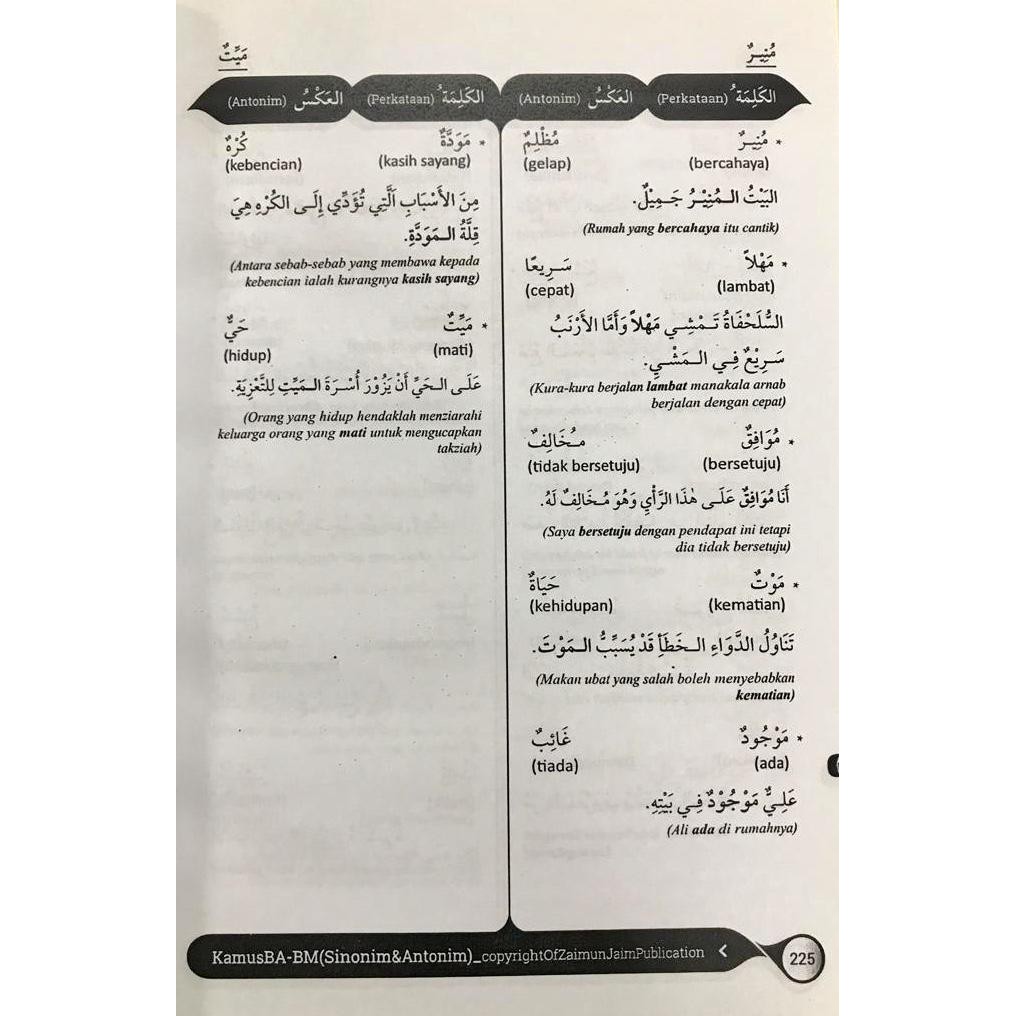 مُنِيـرٌ
مَيِّتٌ
الكَلِمَةُ (Perkataan) العَكْسُ (Antonim)
الكَلِمَةُ (Perkataan) العَكْسُ (Antonim)
* مُنِيـرٌ مُظْلِمٌ
(bercahaya) (gelap)
البَيْتُ الـمُنِيْرُ جَـمِيْلٌ.
(Rumah yang bercahaya itu cantik)
* مَهْلاً سَـرِيعًا
(lambat) (cepat)
السُّلَحْفَاةُ تَـمْشِـي مَهْلاً وَأَمَّا الأَرْنَبُ
سَـرِيْعٌ فِـي الـمَشْـيِ.
(Kura-kura berjalan lambat manakala arnab
berjalan dengan cepat)
* مُوَافِقٌ مـُخَالِفٌ
(bersetuju) (tidak bersetuju)
أَنَا مُوَافِقٌ عَلَـى هٰذَا الرَّأْيِ وَهُوَ مـُخَالِفٌ لَهُ.
(Saya bersetuju dengan pendapat ini tetapi
dia tidak bersetuju)
* مَوْتٌ حَيَاةٌ
(kematian) (kehidupan)
تَنَاوُلُ الدَّوَاءِ الـخَطَأِ قَدْ يُسَبِّبُ الـمَوْتَ.
(Makan ubat yang salah boleh menyebabkan
kematian)
* مَوْجُودٌ غَائِبٌ
(ada) (tiada)
عَلِـيٌّ مَوْجُوْدٌ فِـي بَيْتِهِ.
(Ali ada di rumahnya)
* مَوَدَّةٌ كُرْهٌ
(kasih sayang) (kebencian)
مِنَ الأَسْبَابِ الَّتِي تُؤَدِّي إِلَـى الكُرْهِ هِيَ
قِلَّةُ الـمَوَدَّةِ.
(Antara sebab-sebab yang membawa kepada
kebencian ialah kurangnya kasih sayang)
* مَيِّتٌ حَيٌّ
(mati) (hidup)
عَلَـى الـحَيِّ أَنْ يَزُوْرَ أُسْرَةَ الـمَيِّتِ لِلتَّعْزِيَةِ.
(Orang yang hidup hendaklah menziarahi
keluarga orang yang mati untuk mengucapkan
takziah)
KamusBA-BM(Sinonim&Antonim)_copyrightOfZaimunJaimPublication
225